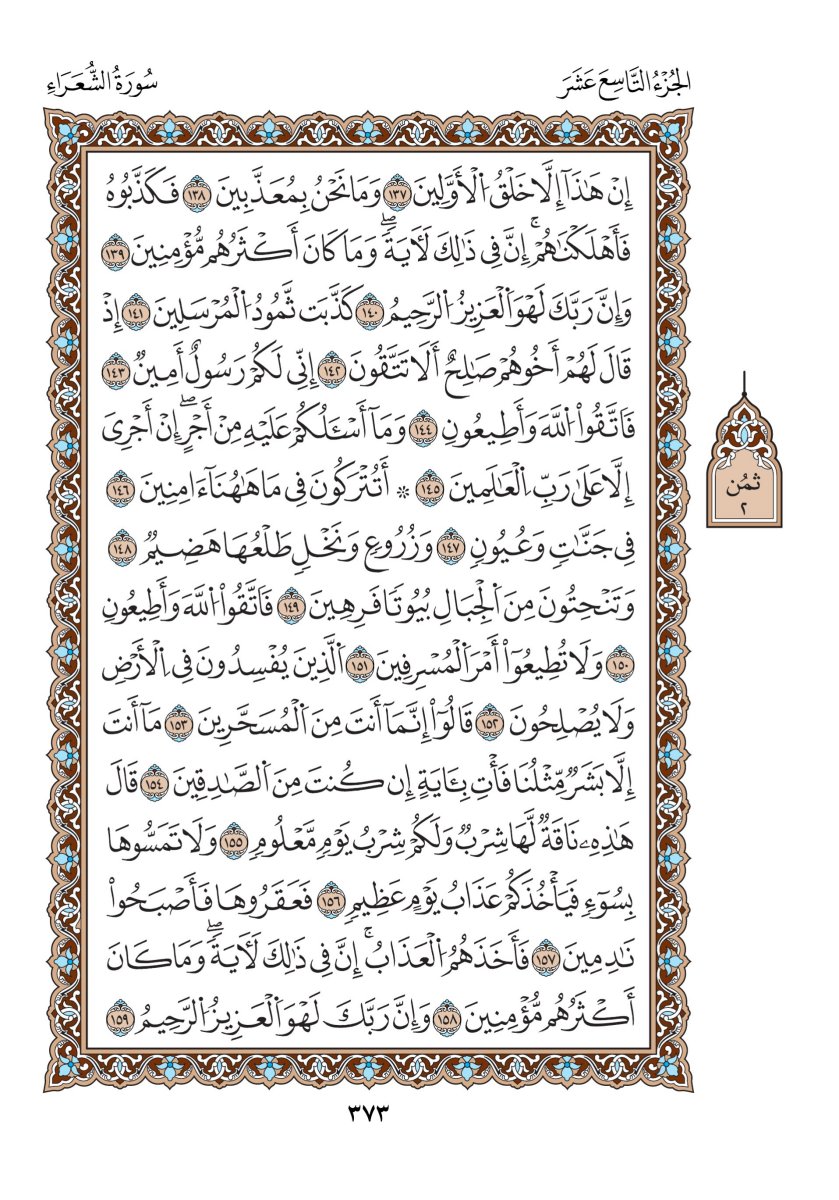 الجُزْءُ التَّاسِعَ عَشَرَ
سُورَةُ الشُّعَرَاءِ
إِنْ هَٰذَآ إِلَّا خَلْقُ اُ۬لْأَوَّلِينَ ١٣٧ وَمَا نَحْنُ بِمُعَذَّبِينَ ١٣٨ فَكَذَّبُوهُ
فَأَهْلَكْنَٰهُمْۚ إِنَّ فِى ذَٰلِكَ لَأٓيَةًۖ وَمَا كَانَ أَكْثَرُهُم مُّؤْمِنِينَ ١٣٩
وَإِنَّ رَبَّكَ لَهْوَ اَ۬لْعَزِيزُ اُ۬لرَّحِيمُ ١٤٠ كَذَّبَت ثَّمُودُ اُ۬لْمُرْسَلِينَ ١٤١ إِذْ
قَالَ لَهُمْ أَخُوهُمْ صَٰلِحٌ أَلَا تَتَّقُونَ ١٤٢ إِنِّى لَكُمْ رَسُولٌ أَمِينٌ ١٤٣
فَاتَّقُواْ اُ۬للَّهَ وَأَطِيعُونِ ١٤٤ وَمَآ أَسْـَٔلُكُمْ عَلَيْهِ مِنْ أَجْرٍۖ إِنْ أَجْرِىَ
إِلَّا عَلَىٰ رَبِّ اِ۬لْعَٰلَمِينَ ١٤٥ ۞ أَتُتْرَكُونَ فِى مَا هَٰهُنَآ ءَامِنِينَ ١٤٦
فِى جَنَّٰتٍ وَعُيُونٍ ١٤٧ وَزُرُوعٍ وَنَخْلٍ طَلْعُهَا هَضِيمٌ ١٤٨
وَتَنْحِتُونَ مِنَ اَ۬لْجِبَالِ بُيُوتًا فَرِهِينَ ١٤٩ فَاتَّقُواْ اُ۬للَّهَ وَأَطِيعُونِ
١٥٠ وَلَا تُطِيعُوٓاْ أَمْرَ اَ۬لْمُسْرِفِينَ ١٥١ اَ۬لَّذِينَ يُفْسِدُونَ فِى اِ۬لْأَرْضِ
وَلَا يُصْلِحُونَ ١٥٢ قَالُوٓاْ إِنَّمَآ أَنتَ مِنَ اَ۬لْمُسَحَّرِينَ ١٥٣ مَآ أَنتَ
إِلَّا بَشَرٌ مِّثْلُنَا فَأْتِ بِـَٔايَةٍ إِن كُنتَ مِنَ اَ۬لصَّٰدِقِينَ ١٥٤ قَالَ
هَٰذِهِۦ نَاقَةٌ لَّهَا شِرْبٌ وَلَكُمْ شِرْبُ يَوْمٍ مَّعْلُومٍ ١٥٥ وَلَا تَمَسُّوهَا
بِسُوٓءٍ فَيَأْخُذَكُمْ عَذَابُ يَوْمٍ عَظِيمٍ ١٥٦ فَعَقَرُوهَا فَأَصْبَحُواْ
نَٰدِمِينَ ١٥٧ فَأَخَذَهُمُ اُ۬لْعَذَابُۚ إِنَّ فِى ذَٰلِكَ لَأٓيَةًۖ وَمَا كَانَ
أَكْثَرُهُم مُّؤْمِنِينَ ١٥٨ وَإِنَّ رَبَّكَ لَهْوَ اَ۬لْعَزِيزُ اُ۬لرَّحِيمُ ١٥٩
ثُمُن
٢
٣٧٣